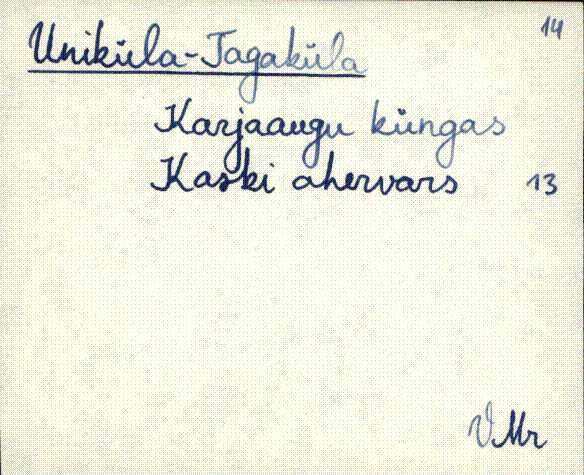 14
Uniküla-Tagaküla
Karjaaugu küngas
Kaski ahervars 13
VMr